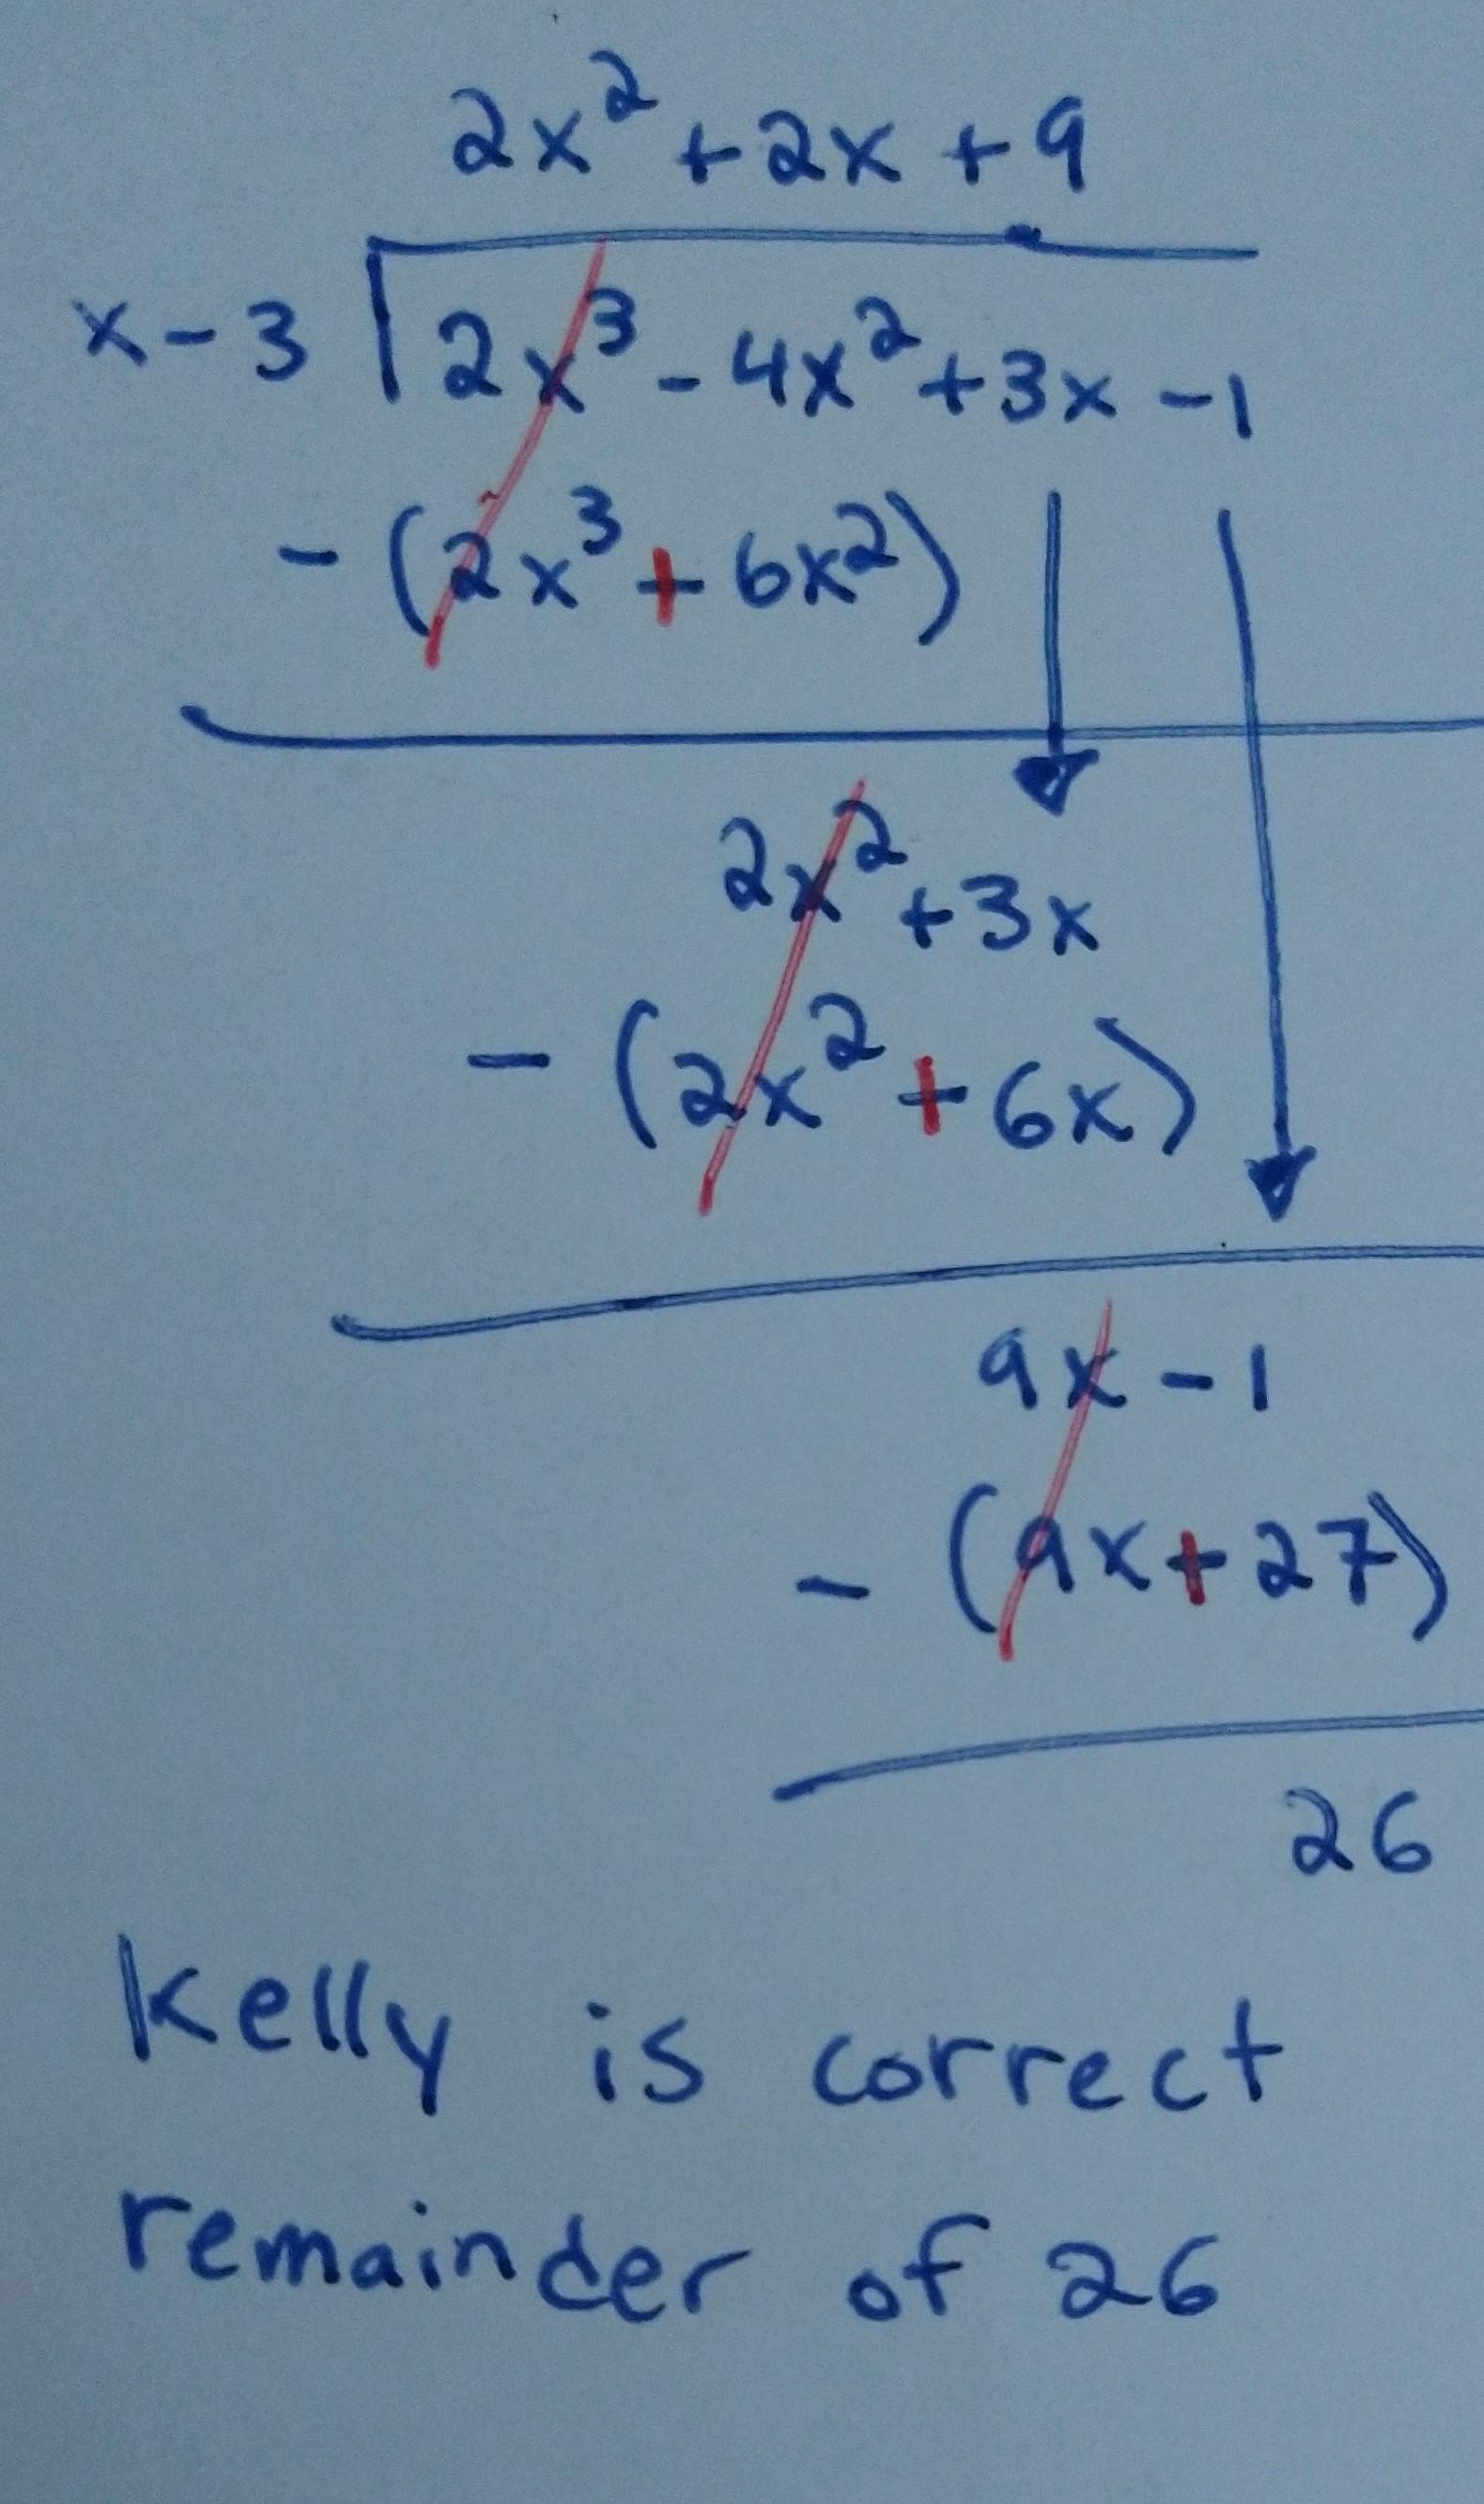 2x² + 2x + 9
x - 3 2x³ - 4x² + 3x - 1
- (2x³ + 6x²)
2x² + 3x
- (2x² + 6x)
9x - 1
- (9x + 27)
26
Kelly is correct
remainder of 26